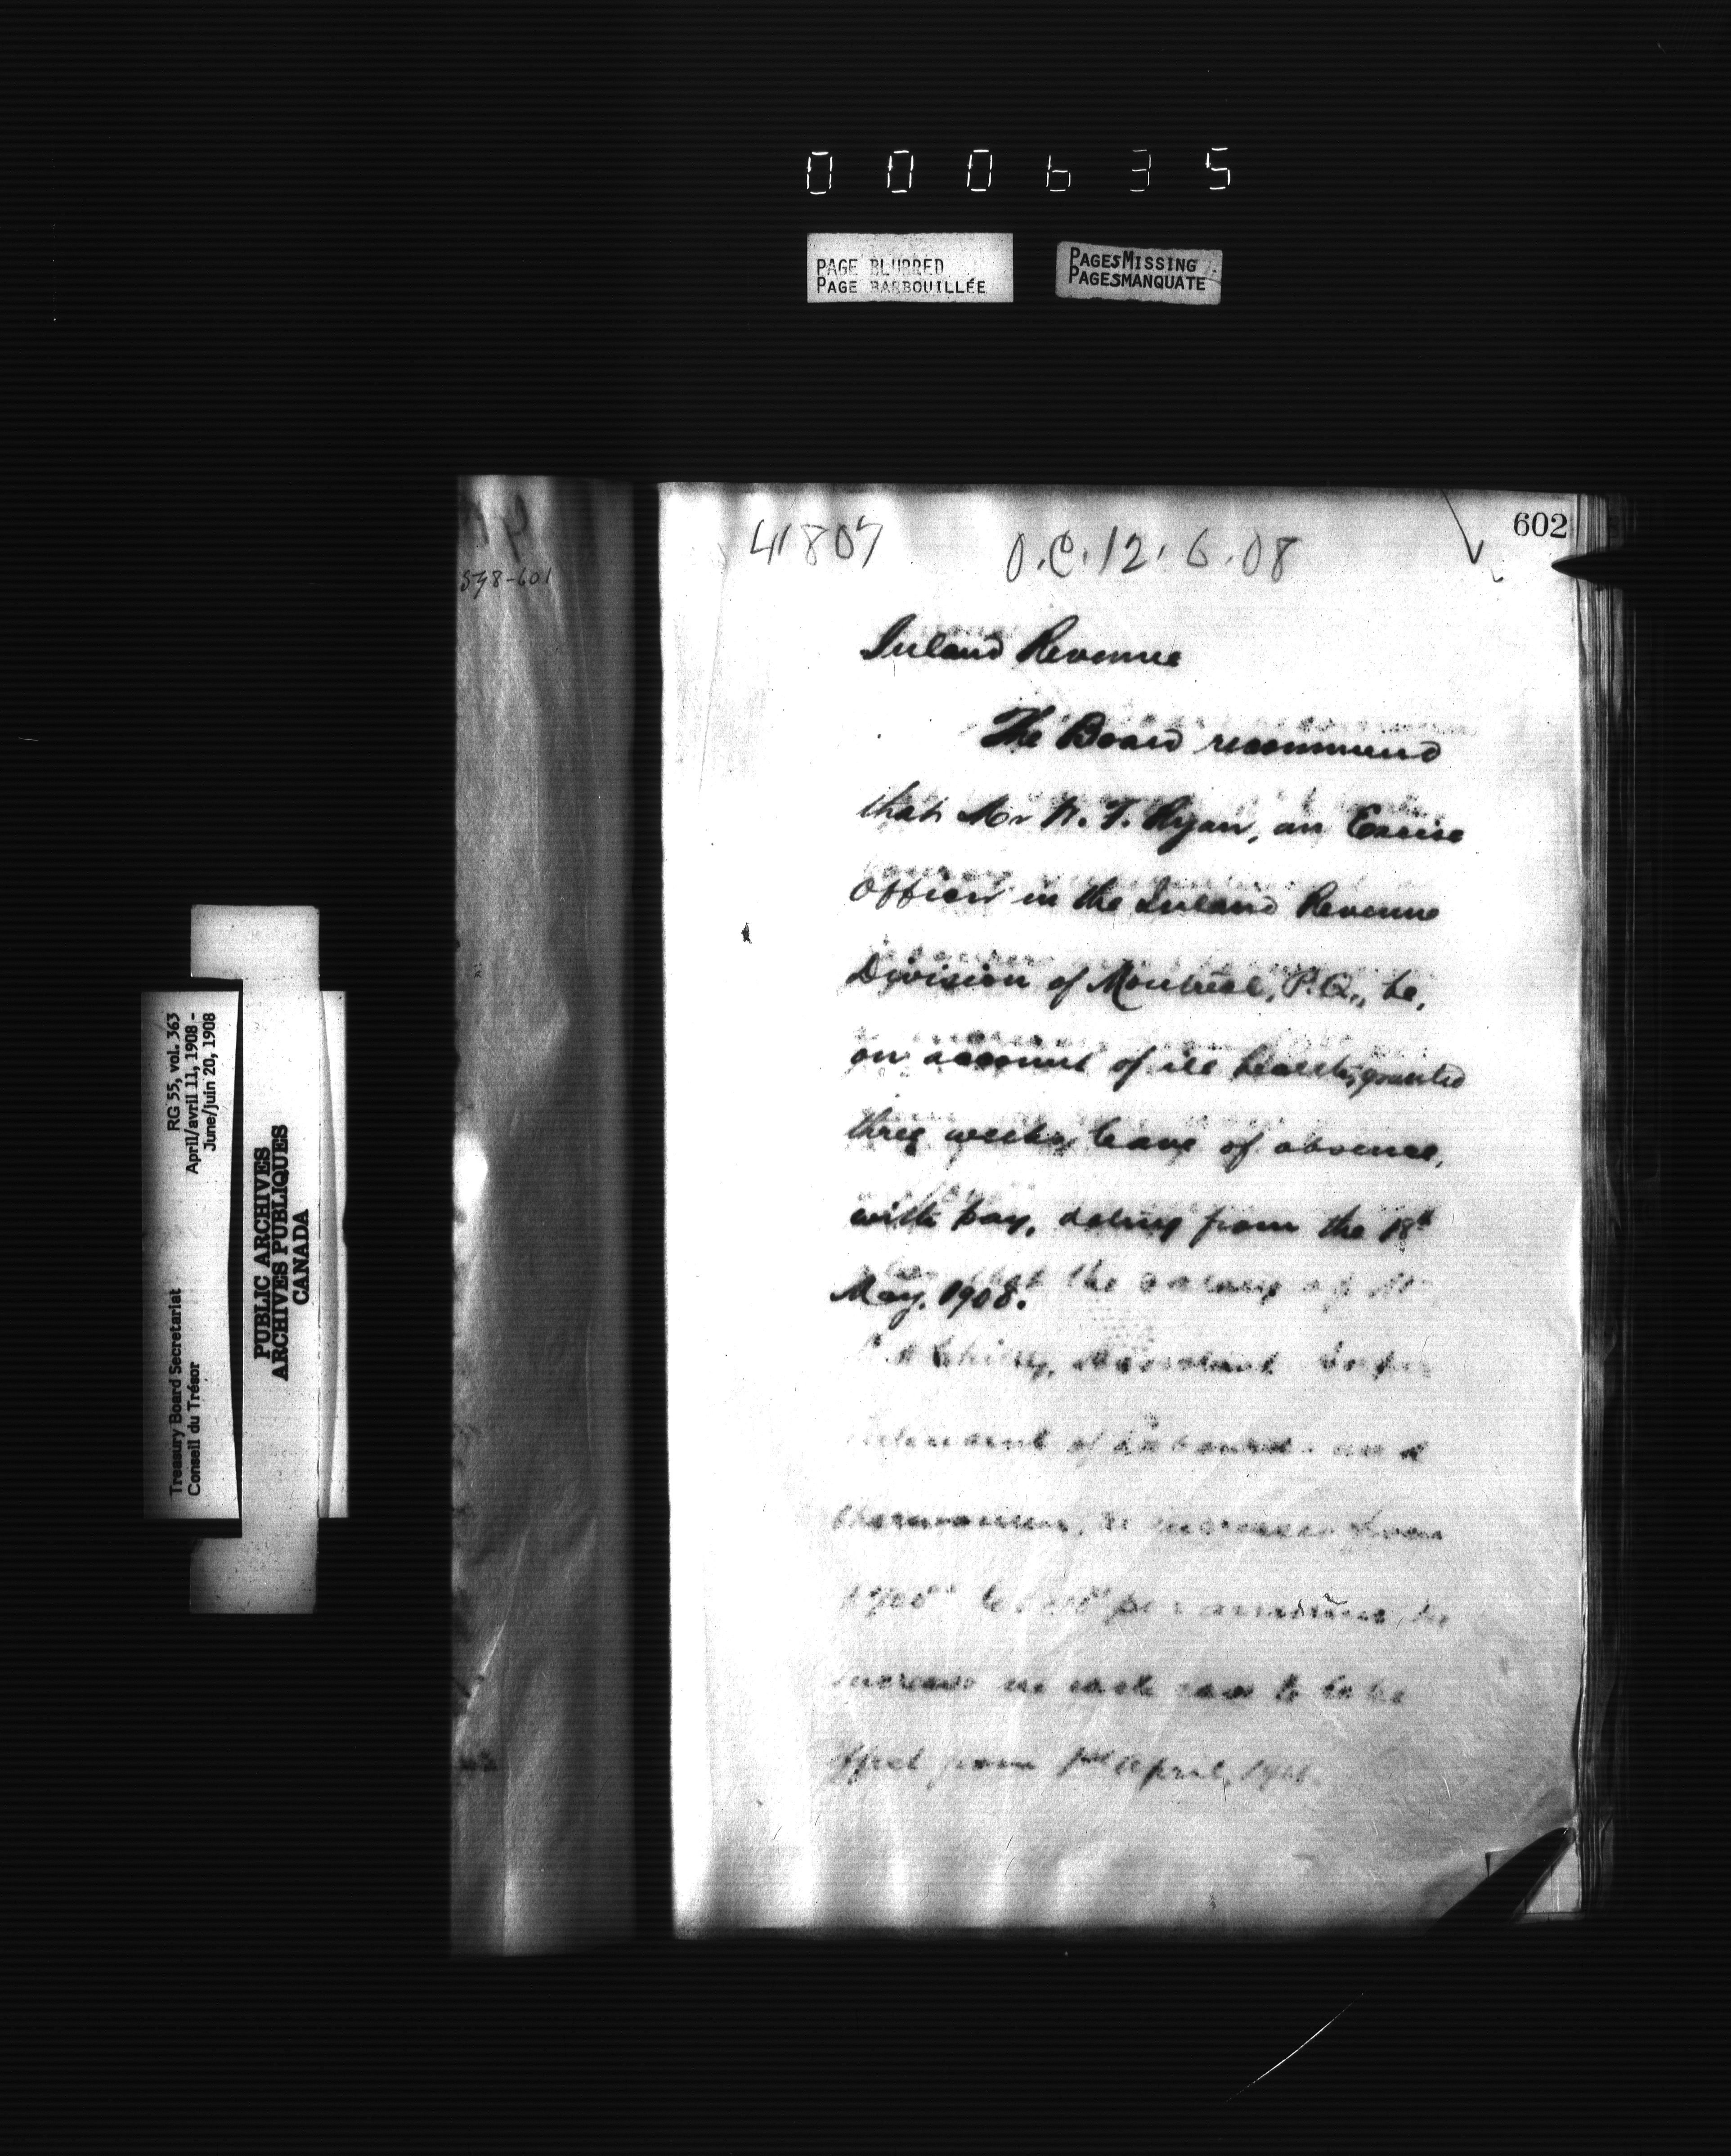 000635
PAGE BLURRED
PAGE BARBOUILLÉE
PAGES MISSING
PAGES MANQUATE
598-601
602
41807
O.C. 12.6.08
Inland Revenue
The Board recommend
that Mr N. T. Ryan, an Excise
Officer in the Inland Revenue
Division of Montreal, P.Q., be,
on account of ill health, granted
three weeks leave of absence,
with pay, dating from the 18th
May, 1908.
the salary of Mr
Assistant
of and
increased from
to per annum, the
increase in each case to take
effect from 1st April,
RG 55, vol. 363
April/avril 11, 1908 -
June/juin 20, 1908
Treasury Board Secretariat
Conseil du Trésor
PUBLIC ARCHIVES
ARCHIVES PUBLIQUES
CANADA